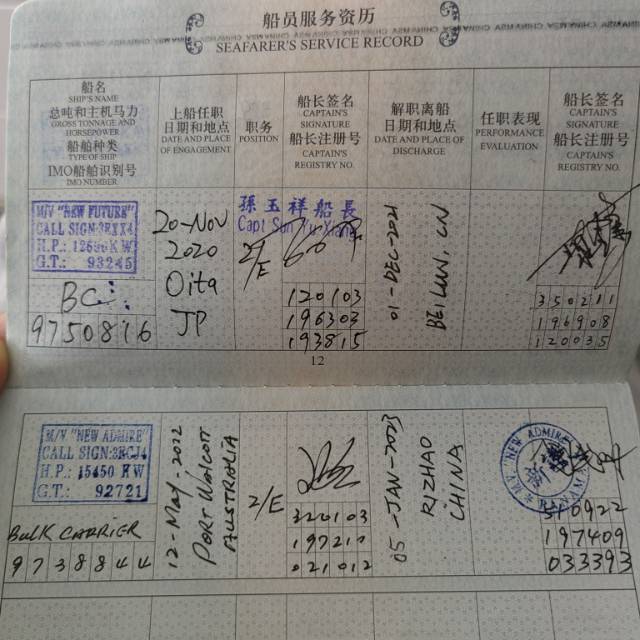 船员服务资历
SEAFARER'S SERVICE RECORD
船名
SHIP'S NAME
总吨和主机马力
GROSS TONNAGE AND
HORSEPOWER
船舶种类
TYPE OF SHIP
IMO船舶识别号
IMO NUMBER
上船任职
日期和地点
DATE AND PLACE
OF ENGAGEMENT
职务
POSITION
船长签名
CAPTAIN'S
SIGNATURE
船长注册号
CAPTAIN'S
REGISTRY NO.
解职离船
日期和地点
DATE AND PLACE OF
DISCHARGE
任职表现
PERFORMANCE
EVALUATION
船长签名
CAPTAIN'S
SIGNATURE
船长注册号
CAPTAIN'S
REGISTRY NO.
M/V "NEW FUTURE"
CALL SIGN:3EXX4
H.P.: 12690 KW
G.T.: 93245
BC
9750816
20-NOV
2020
Oita
JP
2/E
孫玉祥船長
Capt Sun Yu Xiang
120103
196303
193815
01-DEC-2021
BEILUN. CN
350211
196908
120035
12
M/V "NEW ADMIRE"
CALL SIGN:3RCJ4
H.P.: 15450 KW
G.T.: 92721
BULK CARRIER
9738844
12-MAY-2022
PORT WALCOTT
AUSTRALIA
2/E
320103
197210
021012
05-JAN-2023
RIZHAO
CHINA
M.V. "NEW ADMIRE"
PANAMA
310922
197409
033393